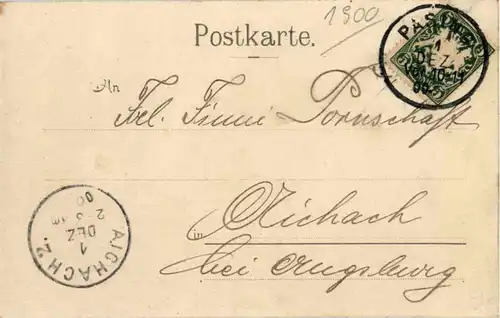 1900
Postkarte.
PASING
1
DEZ.
An
Frl. Finni Pornschaft
in Aichach
bei Augsburg
AICHACH 2.
1
DEZ
2-3 NM
00